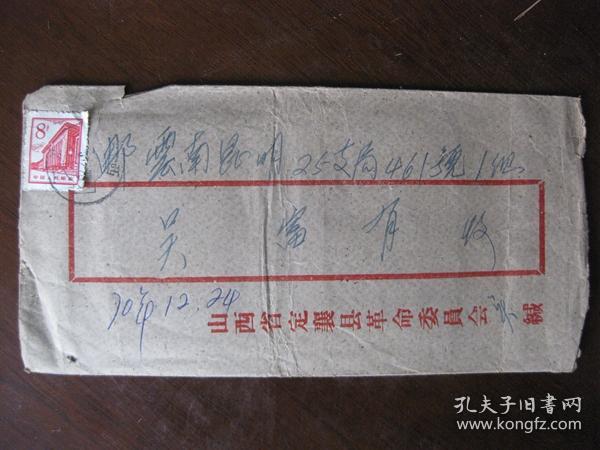 8分
中国人民邮政
邮 雲南昆明 25支局461號1组
吴富有收
70年12.24
山西省定襄县革命委員会 吴 緘
孔夫子旧书网
www.kongfz.com